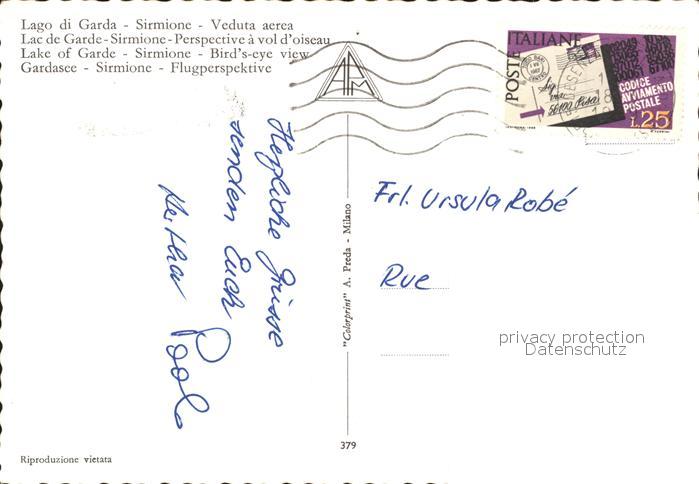 Lago di Garda - Sirmione - Veduta aerea
Lac de Garde-Sirmione-Perspective à vol d'oiseau
Lake of Garde - Sirmione - Bird's-eye view
Gardasee - Sirmione - Flugperspektive
POSTE ITALIANE
56100 Pisa
CODICE
AVVIAMENTO
POSTALE
L.25
Herzliche Grüsse
senden Euch
Frl. Ursula Robé
Rue
privacy protection
Datenschutz
"Colorprint" A. Preda - Milano
379
Riproduzione vietata